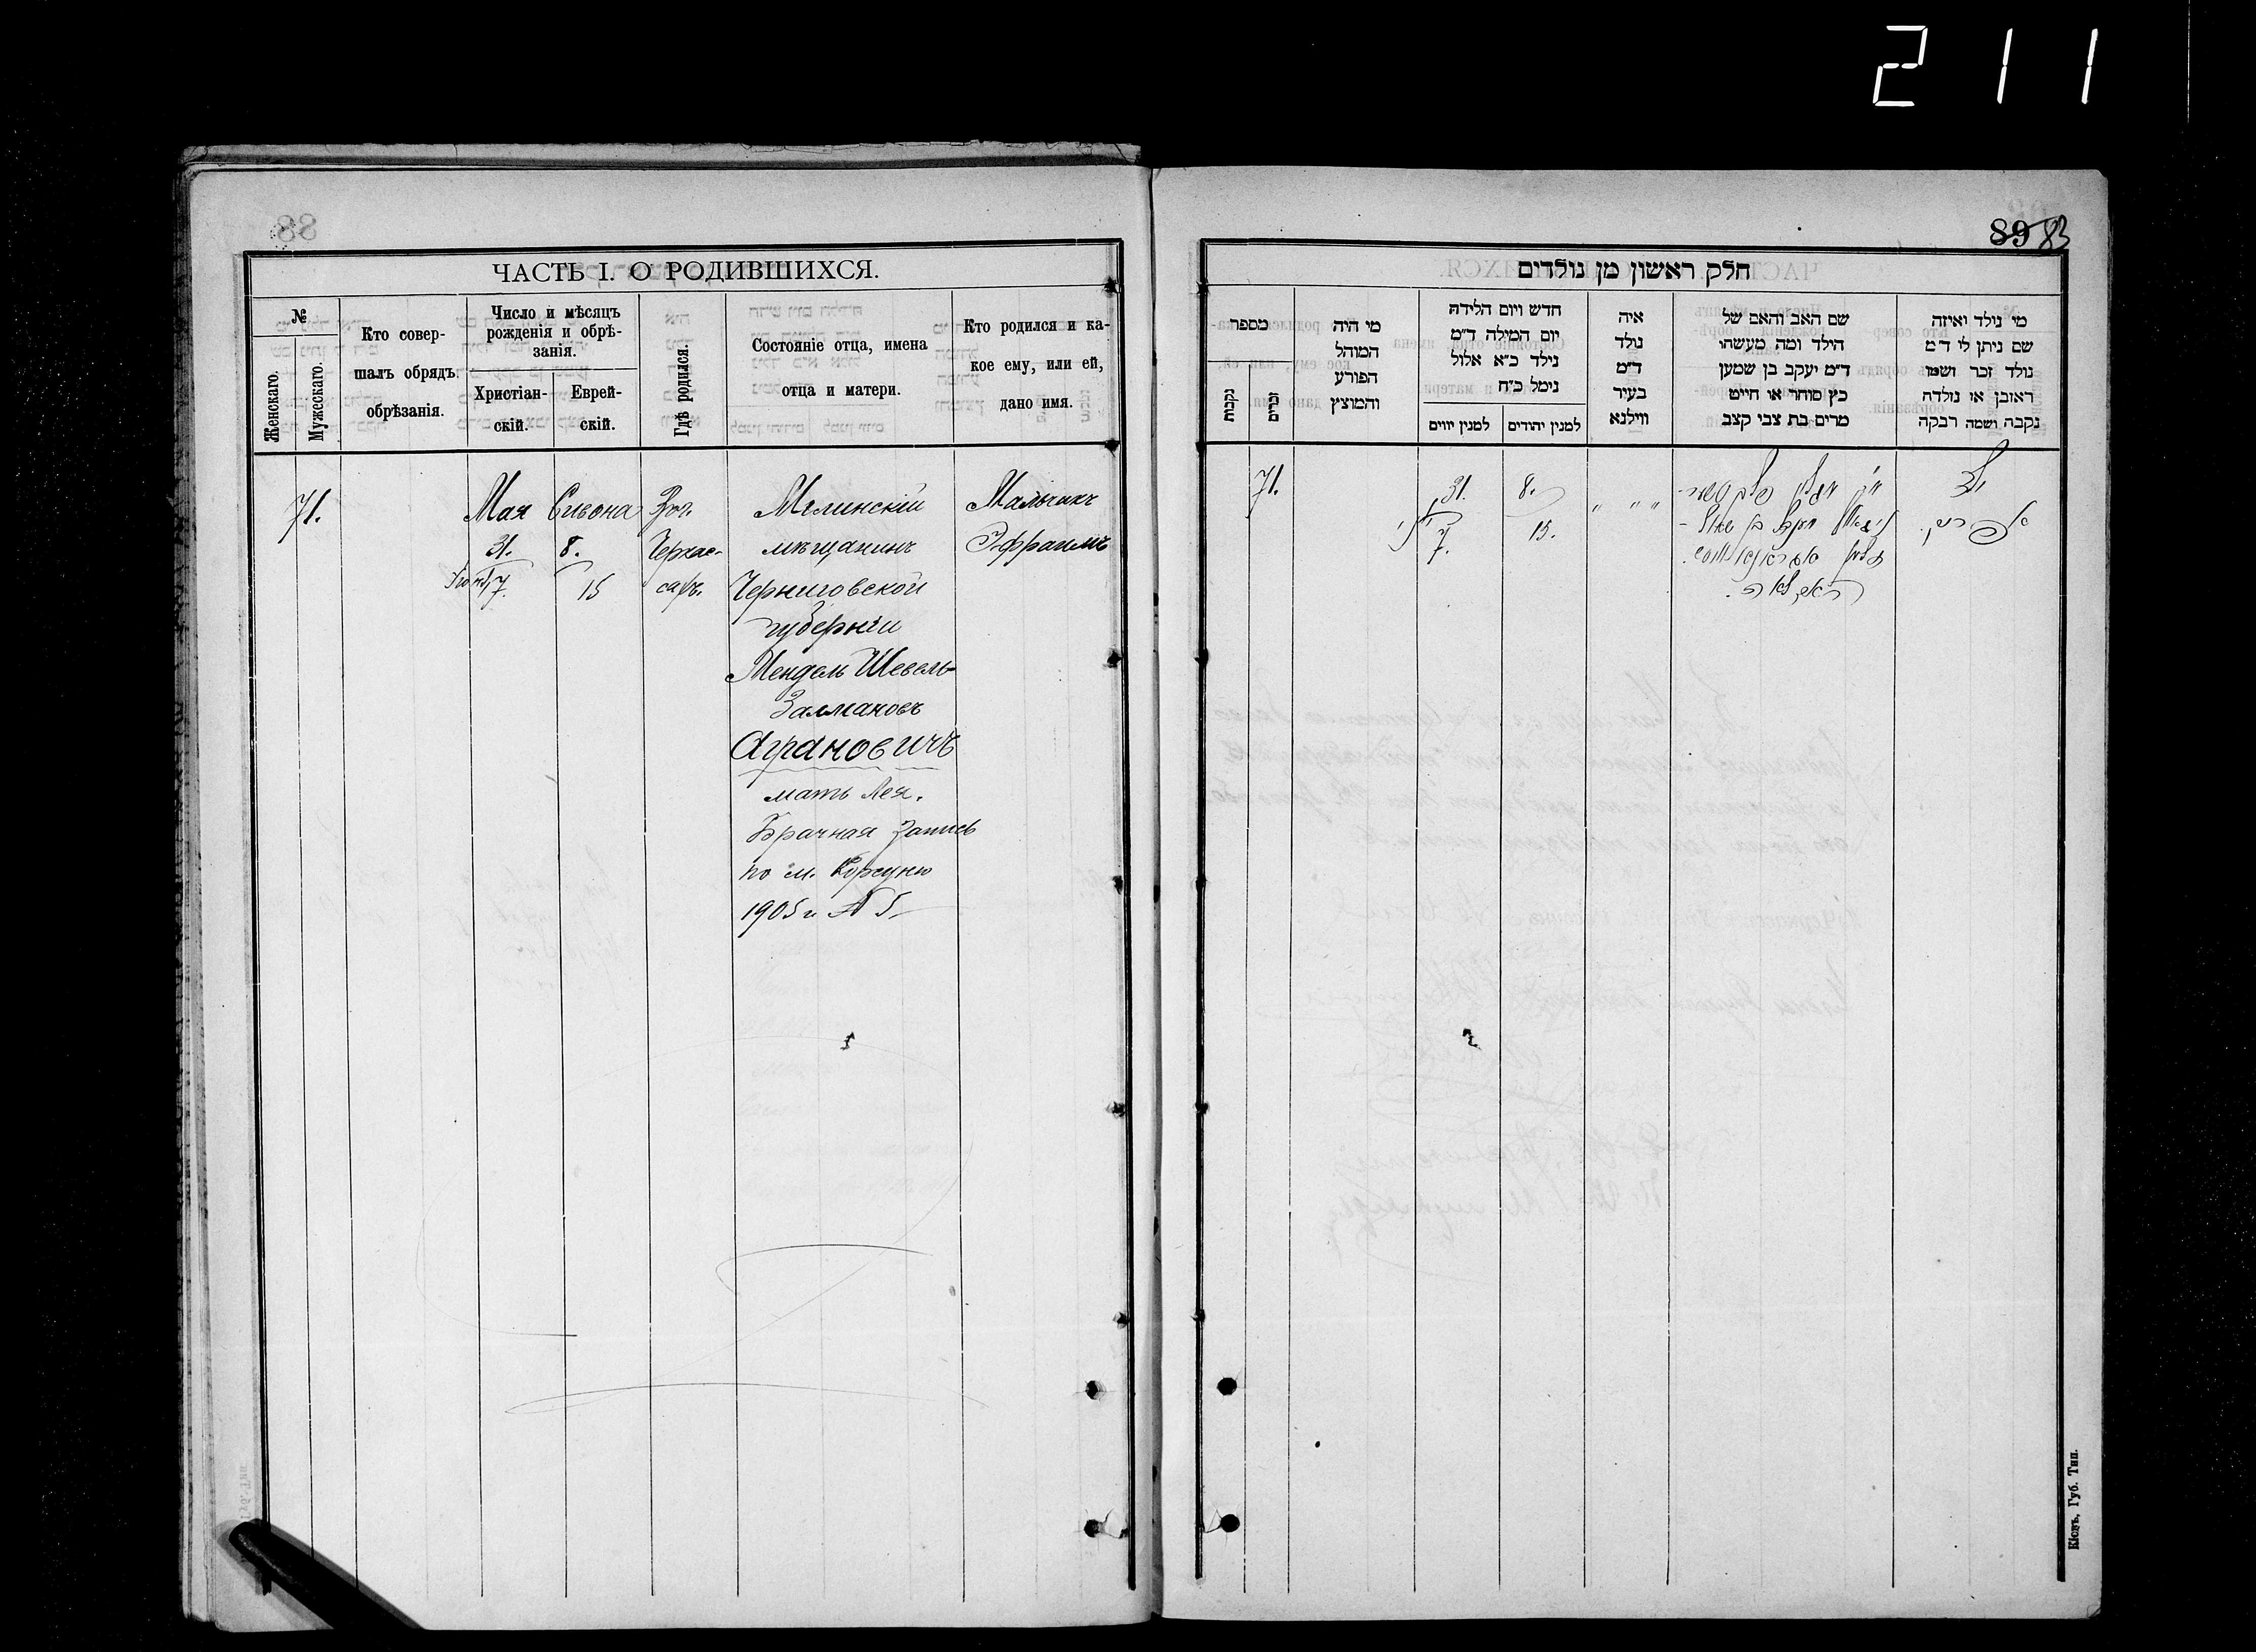 211
88
ЧАСТЬ I. О РОДИВШИХСЯ.
№
Женскаго.
Мужескаго.
Кто совер-
шалъ обрядъ
обрѣзанія.
Число и мѣсяцъ
рожденія и обрѣ-
занія.
Христіан-
скій.
Еврей-
скій.
Гдѣ родился.
Состояніе отца, имена
отца и матери.
Кто родился и ка-
кое ему, или ей,
дано имя.
71.
Мая
31.
7.
Сивона
8.
15
Гор.
Черкас-
сахъ.
Мглинскій
мѣщанинъ
Черниговской
губерніи
Мендель Шевель-
Залмановъ
Аграновичъ
мать Лея.
Брачная запись
по м. Корсуню
1905 г. № 5
Мальчикъ
Эфраимъ
89 83
חלק ראשון מן נולדים
מספר
נקבות
זכרים
מי היה
המוהל
הפורע
והמוצץ
חדש ויום הלידה
יום המילה ד״מ
נילד כ״א אלול
נימל כ״ח
למנין יווים
למנין יהודים
איה
נולד
ד״מ
בעיר
ווילנא
שם האב והאם של
הילד ומה מעשהו
ד״מ יעקב בן שמען
כץ סוחר או חייט
מרים בת צבי קצב
מי נולד ואיזה
שם ניתן לו ד״מ
נולד זכר ושמו
ראובן או נולדה
נקבה ושמה רבקה
71.
31.
7.
8.
15.
" " "
ילד
אפרים
Кіевъ, Губ. Тип.